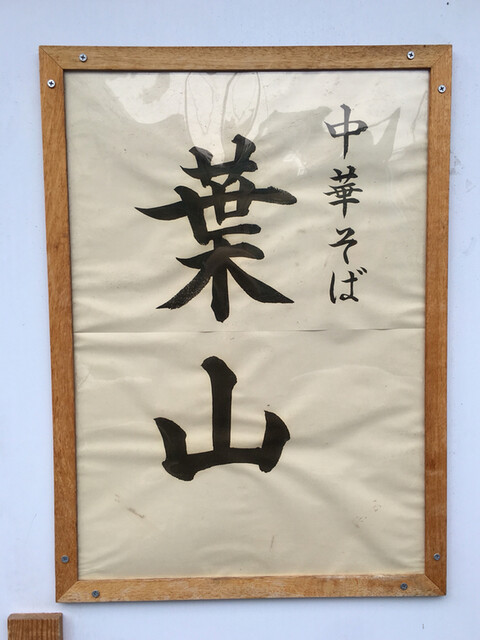 中華そば
葉山